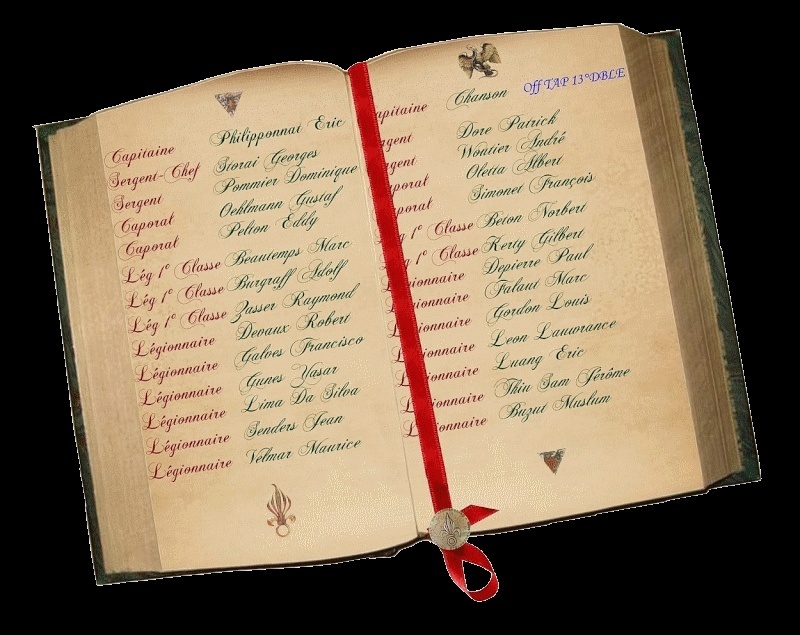 Capitaine Philipponnai Eric
Sergent-Chef Storai Georges
Sergent Pommier Dominique
Caporal Oehlmann Gustaf
Caporal Pelton Eddy
Lég 1e Classe Beautemps Marc
Lég 1e Classe Burgraff Adolf
Lég 1e Classe Zasser Raymond
Légionnaire Devaux Robert
Légionnaire Galves Francisco
Légionnaire Gunes Yasar
Légionnaire Lima Da Silva
Légionnaire Senders Jean
Légionnaire Velmar Maurice
apitaine Chanson Off TAP 13°DBLE
rgent Dore Patrick
rgent Woutier André
aporal Oletta Albert
poral Simonet François
g 1e Classe Beton Norbert
g 1e Classe Kerty Gilbert
Légionnaire Depierre Paul
Légionnaire Falaut Marc
Légionnaire Gordon Louis
Légionnaire Leon Lauwrance
Légionnaire Luang Eric
Légionnaire Thiu Sam Jérôme
Légionnaire Buzut Muslum